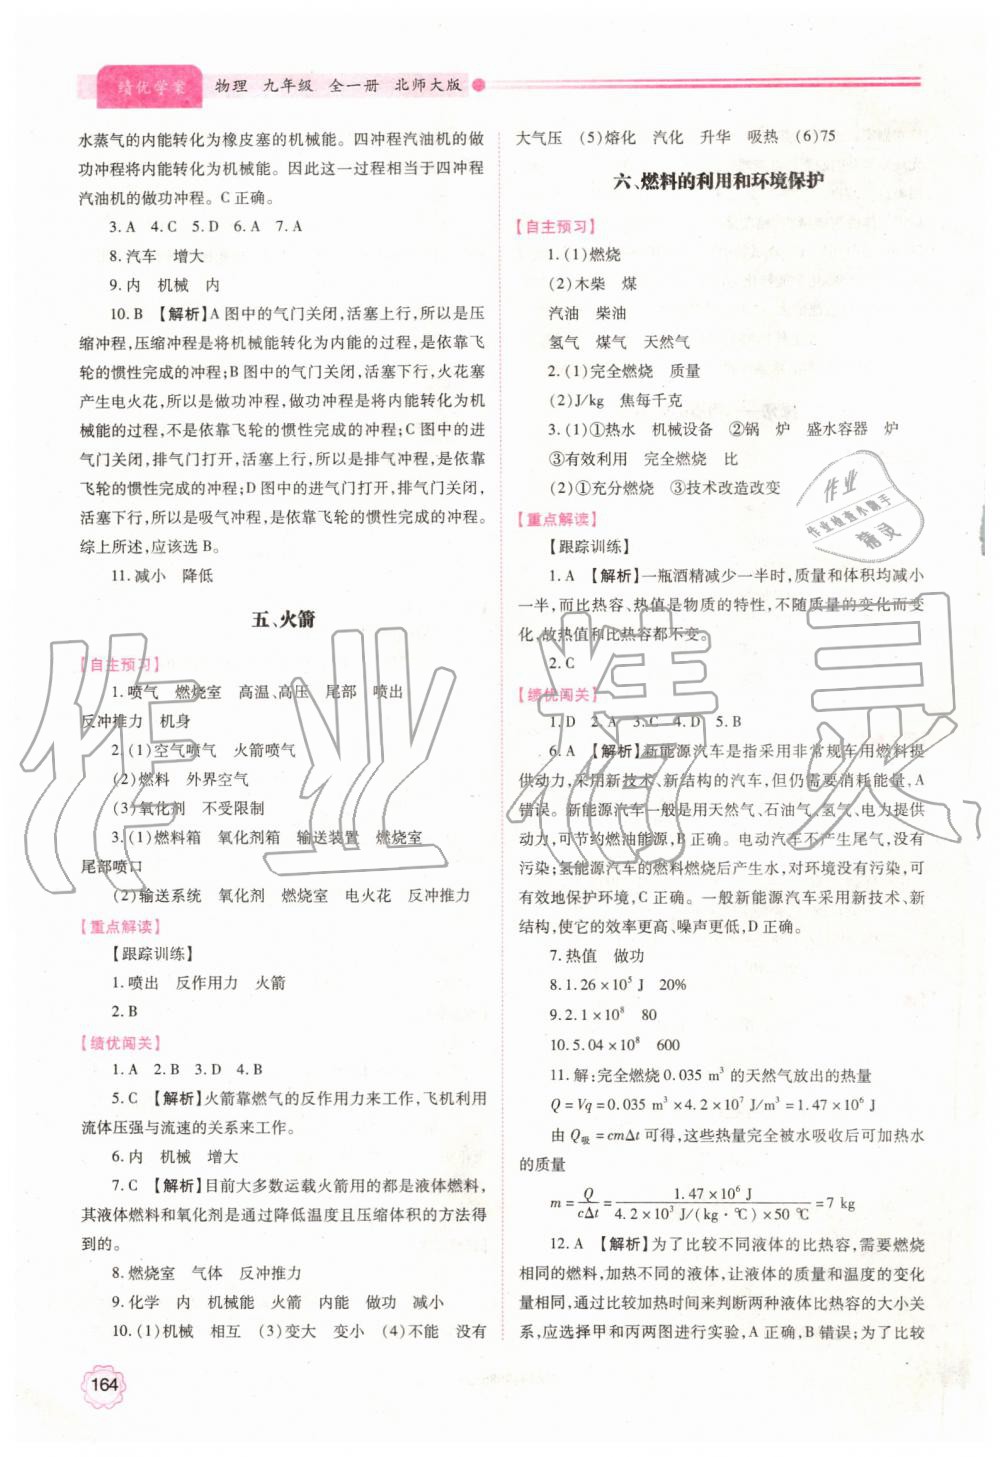 绩优学案 物理 九年级 全一册 北师大版
水蒸气的内能转化为橡皮塞的机械能。四冲程汽油机的做
功冲程将内能转化为机械能。因此这一过程相当于四冲程
汽油机的做功冲程。C正确。
3.A 4.C 5.D 6.A 7.A
8.汽车 增大
9.内 机械 内
10.B 【解析】A图中的气门关闭,活塞上行,所以是压
缩冲程,压缩冲程是将机械能转化为内能的过程,是依靠飞
轮的惯性完成的冲程;B图中的气门关闭,活塞下行,火花塞
产生电火花,所以是做功冲程,是将内能转化为机
械能的过程,不是依靠飞轮的惯性完成的冲程;C图中的进
气门关闭,排气门打开,活塞上行,所以是排气冲程,是依靠
飞轮的惯性完成的冲程;D图中的进气门打开,排气门关闭,
活塞下行,所以是吸气冲程,是依靠飞轮的惯性完成的冲程。
综上所述,应该选B。
11.减小 降低
五、火箭
【自主预习】
1.喷气 燃烧室 高温、高压 尾部 喷出
反冲推力 机身
2.(1)空气喷气 火箭喷气
(2)燃料 外界空气
(3)氧化剂 不受限制
3.(1)燃料箱 氧化剂箱 输送装置 燃烧室
尾部喷口
(2)输送系统 氧化剂 燃烧室 电火花 反冲推力
【重点解读】
【跟踪训练】
1.喷出 反作用力 火箭
2.B
【绩优闯关】
1.A 2.B 3.D 4.B
5.C 【解析】火箭靠燃气的反作用力来工作,飞机利用
流体压强与流速的关系来工作。
6.内 机械 增大
7.C 【解析】目前大多数运载火箭用的都是液体燃料,
其液体燃料和氧化剂是通过降低温度且压缩体积的方法得
到的。
8.燃烧室 气体 反冲推力
9.化学 内 机械能 火箭 内能 做功 减小
10.(1)机械 相互 (3)变大 变小 (4)不能 没有
大气压 (5)熔化 汽化 升华 吸热 (6)75
六、燃料的利用和环境保护
【自主预习】
1.(1)燃烧
(2)木柴 煤
汽油 柴油
氢气 煤气 天然气
2.(1)完全燃烧 质量
(2)J/kg 焦每千克
3.(1)①热水 机械设备 ②锅 炉 盛水容器 炉
③有效利用 完全燃烧 比
(2)①充分燃烧 ③技术改造改变
【重点解读】
【跟踪训练】
1.A 【解析】一瓶酒精减少一半时,质量和体积均减小
一半,而比热容、热值是物质的特性,不随质量的变化而变
化,故热值和比热容都不变。
2.C
【绩优闯关】
1.D 2.A 3.C 4.D 5.B
6.A 【解析】新能源汽车是指采用非常规车用燃料提
供动力,采用新技术、新结构的汽车,但仍需要消耗能量,A
错误。新能源汽车一般是用天然气、石油气、氢气、电力提供
动力,可节约燃油能源,B正确。电动汽车不产生尾气,没有
污染;氢能源汽车的燃料燃烧后产生水,对环境没有污染,可
有效地保护环境,C正确。一般新能源汽车采用新技术、新
结构,使它的效率更高、噪声更低,D正确。
7.热值 做功
8.1.26×10⁵ J 20%
9.2.1×10⁸ 80
10.5.04×10⁸ 600
11.解:完全燃烧0.035 m³的天然气放出的热量
Q=Vq=0.035 m³×4.2×10⁷ J/m³=1.47×10⁶ J
由Q吸=cmΔt可得,这些热量完全被水吸收后可加热水
的质量
m=Q/cΔt=1.47×10⁶ J/4.2×10³ J/(kg·℃)×50 ℃=7 kg
12.A 【解析】为了比较不同液体的比热容,需要燃烧
相同的燃料,加热不同的液体,让液体的质量和温度的变化
量相同,通过比较加热时间来判断两种液体比热容的大小关
系,应选择甲和丙两图进行实验,A正确,B错误;为了比较
164
作业
作业检查小助手
精灵
作业精灵